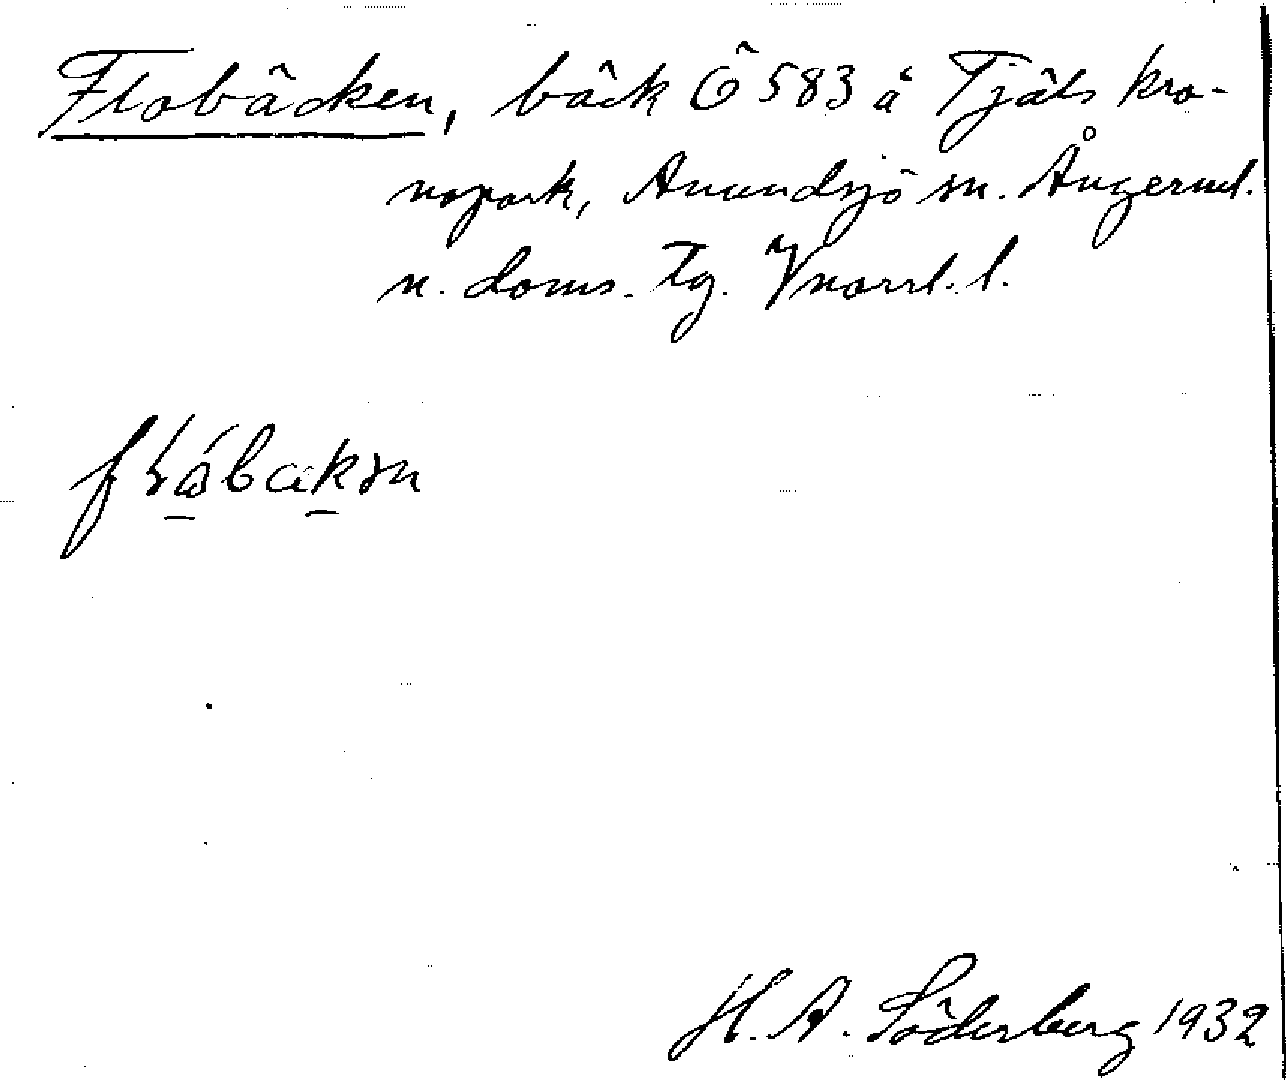 Flobäcken, bäck Ö 583 å Tjäls kro-
nopark, Anundsjö sn. Ångerml.
n. doms. tg. Vnorrl. l.
H. A. Söderberg 1932